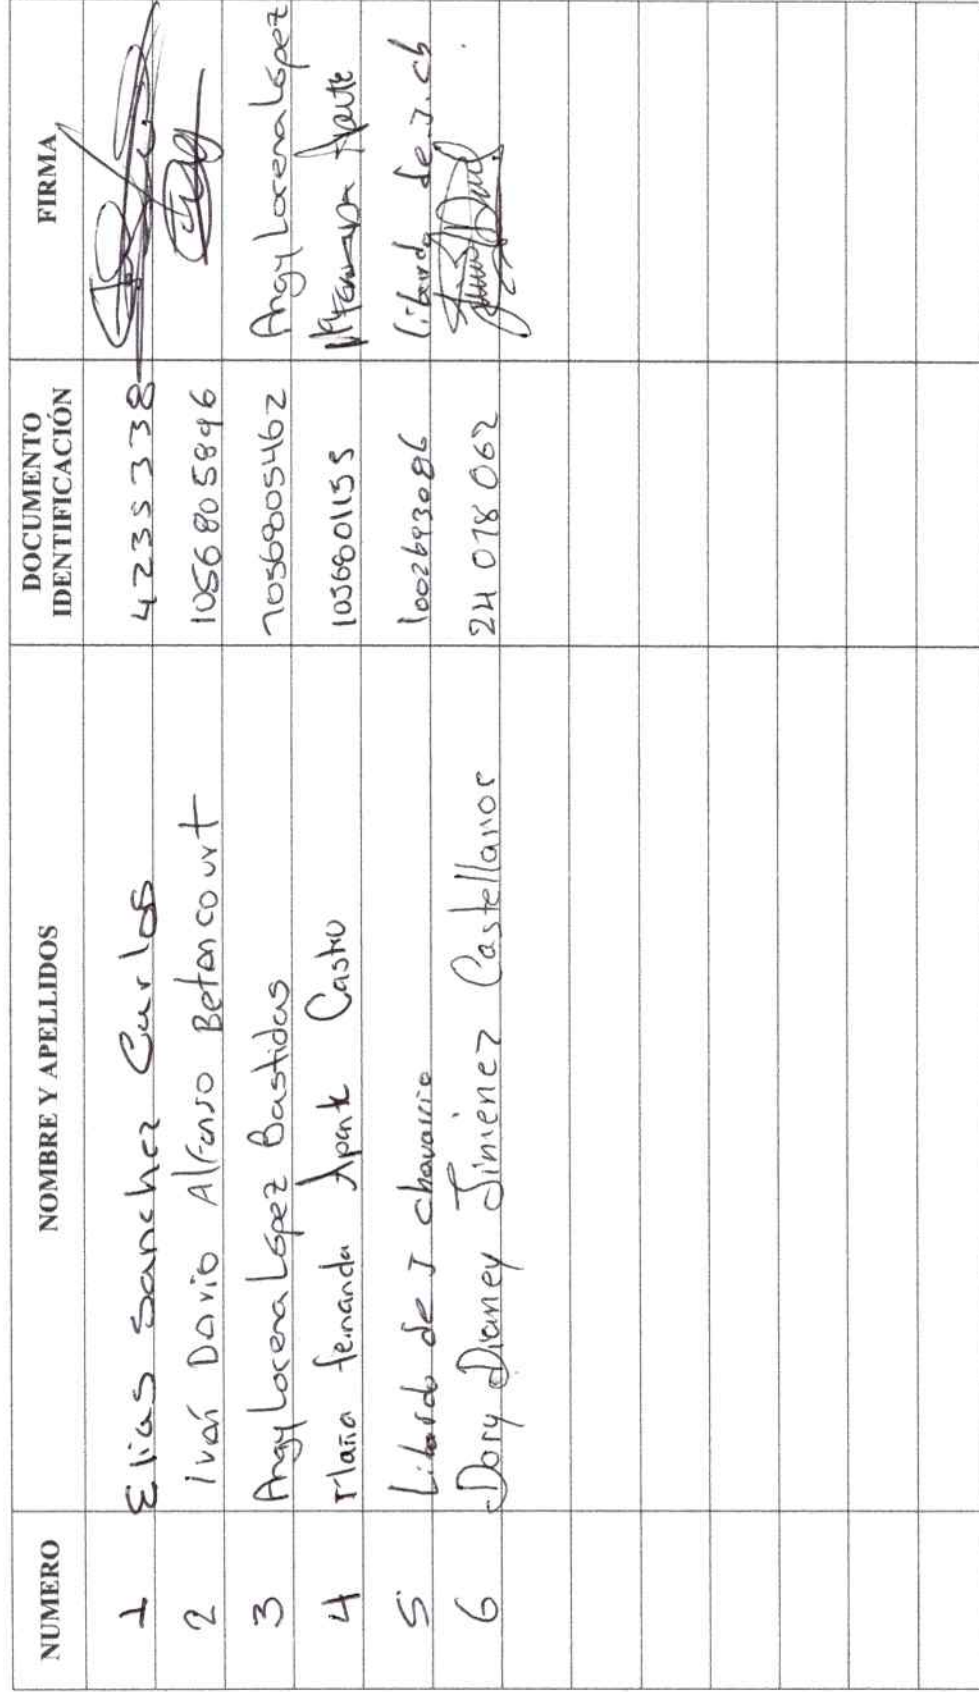 NUMERO NOMBRE Y APELLIDOS DOCUMENTO IDENTIFICACIÓN FIRMA
1 Elias Sanchez Carlos 4235338
2 Iván Dario Alfonso Betancourt 1056805896
3 Angy Lorena López Bastidas 1056805462 Angy Lorena López
4 María fernanda Aponte Castro 1056801155 Mª Fernanda Aponte
5 Libardo de J chavarrio 1002693086 libardo de.J.cb
6 Dory Dianey Jimenez Castellanos 24 078 062